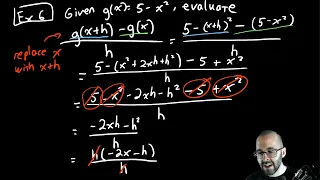 Ex 6 Given g(x) = 5 - x², evaluate
g(x+h) - g(x) / h = 5 - (x+h)² - (5 - x²) / h
replace x with x+h
= 5 - (x² + 2xh + h²) - 5 + x² / h
= 5 - x² - 2xh - h² - 5 + x² / h
= -2xh - h² / h
= h(-2x - h) / h